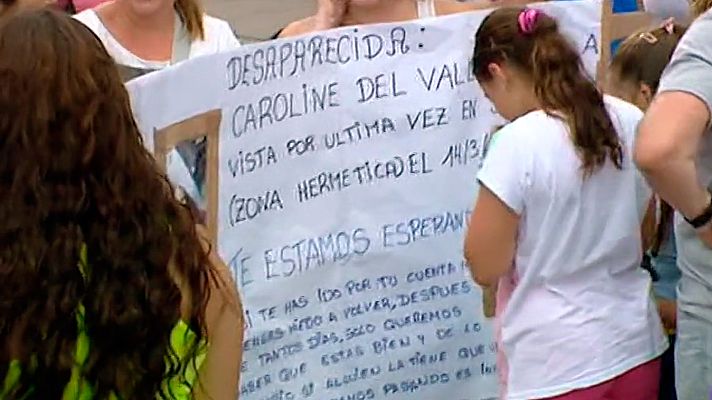 DESAPARECIDA:
CAROLINE DEL VALL
VISTA POR ULTIMA VEZ EN
(ZONA HERMETICA) EL 14/3/
TE ESTAMOS ESPERAN
TE HAS IDO POR TU CUENTA
MIEDO A VOLVER, DESPUES
TANTOS DÍAS, SOLO QUEREMOS
QUE ESTAS BIEN Y DE LO
SI ALGUIEN LA TIENE QUE
PASANDO ES